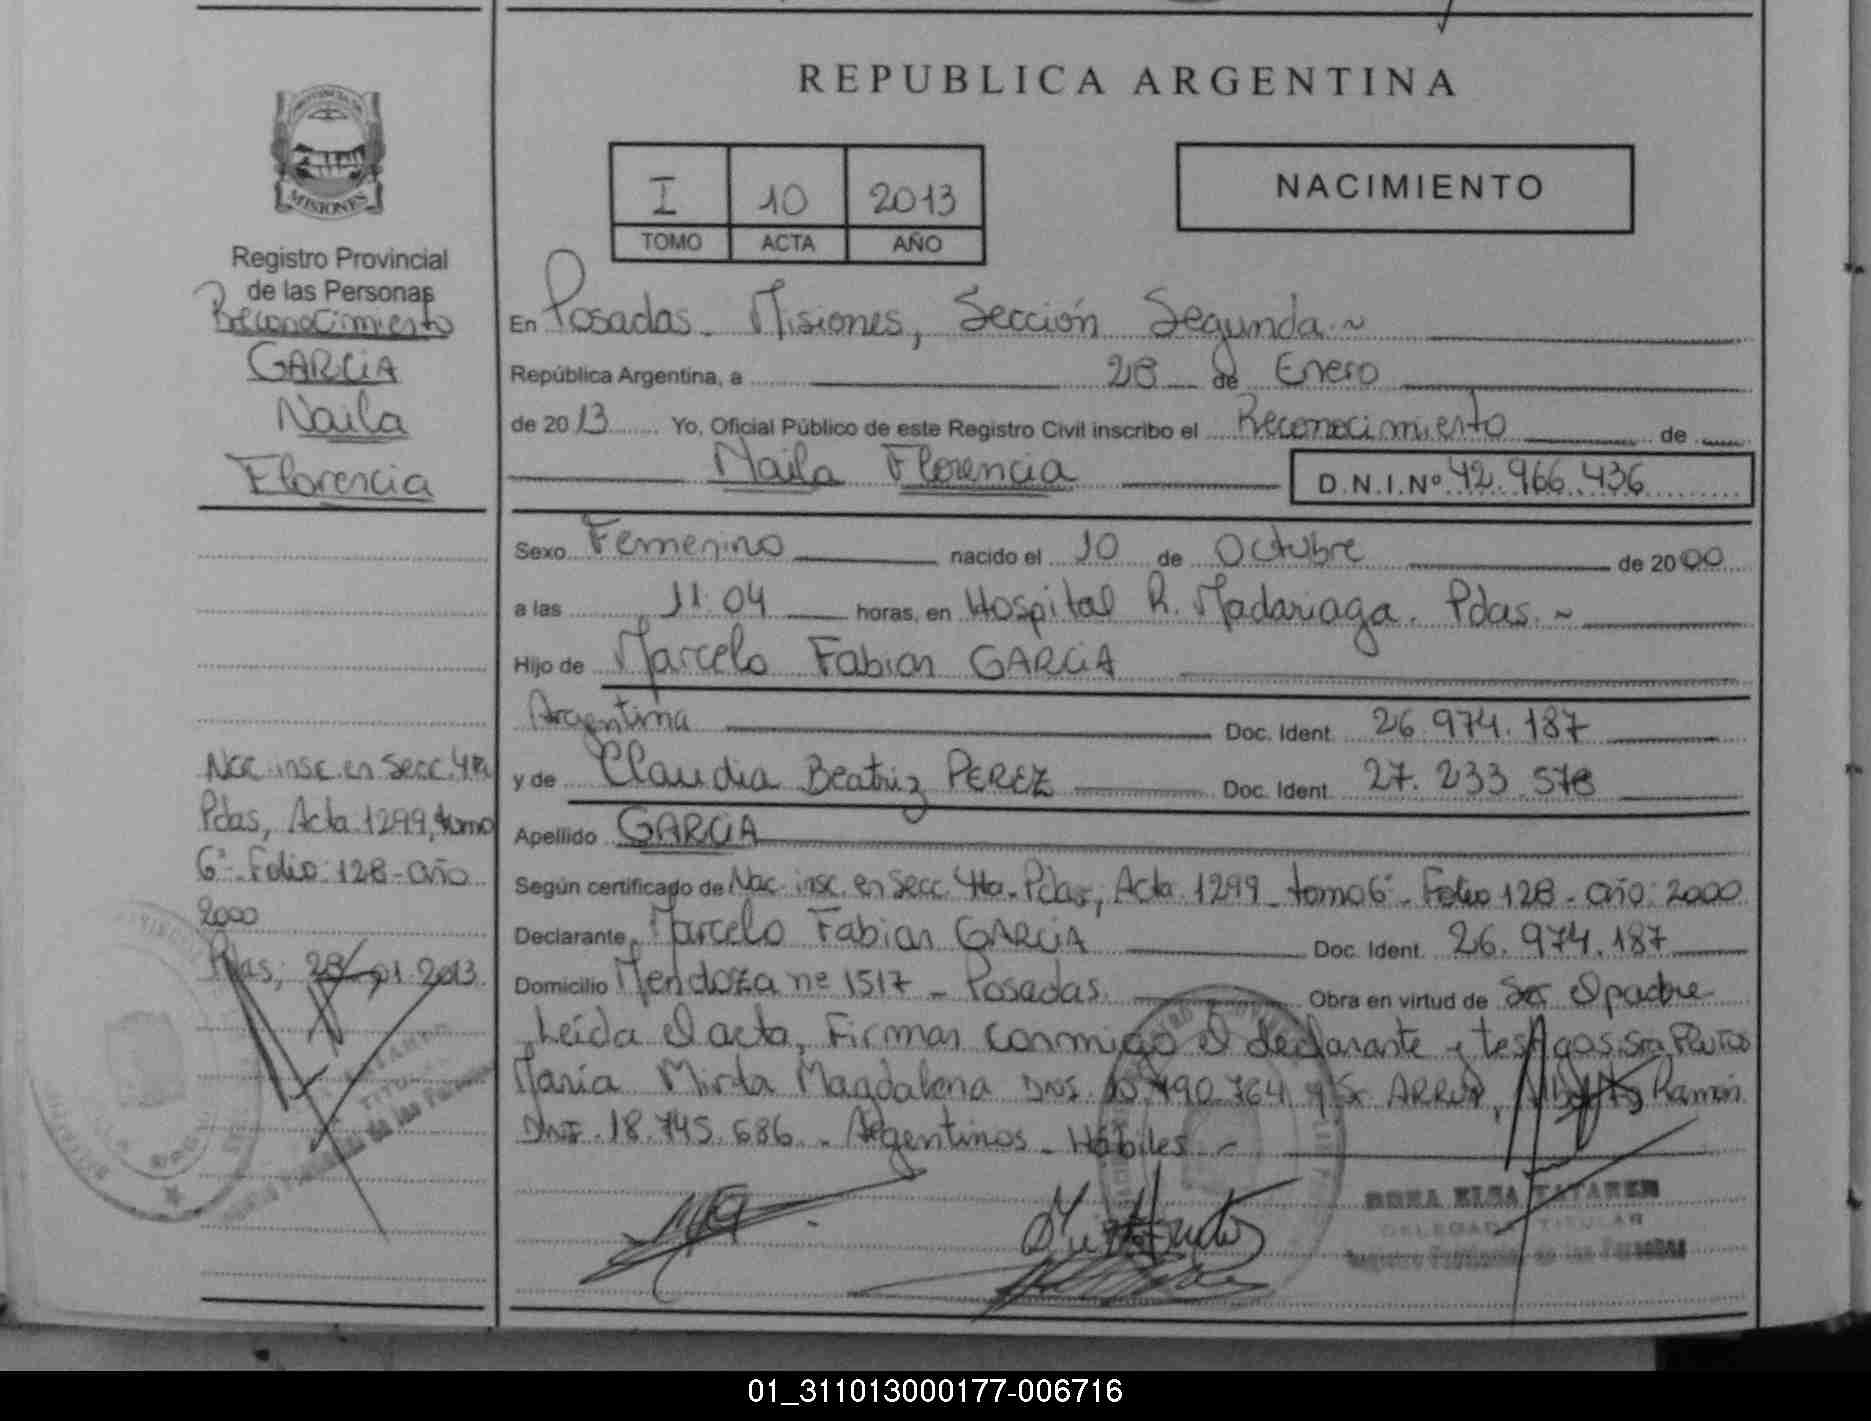 REPUBLICA ARGENTINA
PROVINCIA DE
MISIONES
Registro Provincial
de las Personas
Reconocimiento
GARCIA
Naila
Florencia
Nac. insc. en Secc. 4ta
Pdas, Acta 1299, tomo
6º - Folio: 128 - año
2000
Pdas, 28.01.2013.
I 10 2013
TOMO ACTA AÑO
NACIMIENTO
En Posadas - Misiones, Sección Segunda.~
República Argentina, a 28 de Enero
de 2013 Yo, Oficial Público de este Registro Civil inscribo el Reconocimiento de
Naila Florencia D.N.I.Nº 42.966.436
Sexo Femenino nacido el 10 de Octubre de 2000
a las 11:04 horas, en Hospital R. Madariaga. Pdas. ~
Hijo de Marcelo Fabian GARCIA
Argentina Doc. Ident. 26.974.187
y de Claudia Beatriz PEREZ Doc. Ident. 27.233.578
Apellido GARCIA
Según certificado de Nac. insc. en Secc. 4ta. Pdas, Acta 1299 - tomo 6º - Folio 128 - año: 2000
Declarante Marcelo Fabian GARCIA Doc. Ident. 26.974.187
Domicilio Mendoza nº 1517 - Posadas. Obra en virtud de Ser el padre
Leída el acta, Firman conmigo el declarante y testigos: Sra
Maria Mirta Magdalena DNI 10.490.764 y Sr ARRUA, Alberto Ramón
DNI. 18.745.686 - Argentinos - Hábiles -
DORA ELSA TATAREN
DELEGADA TITULAR
Registro Provincial de las Personas
01_311013000177-006716